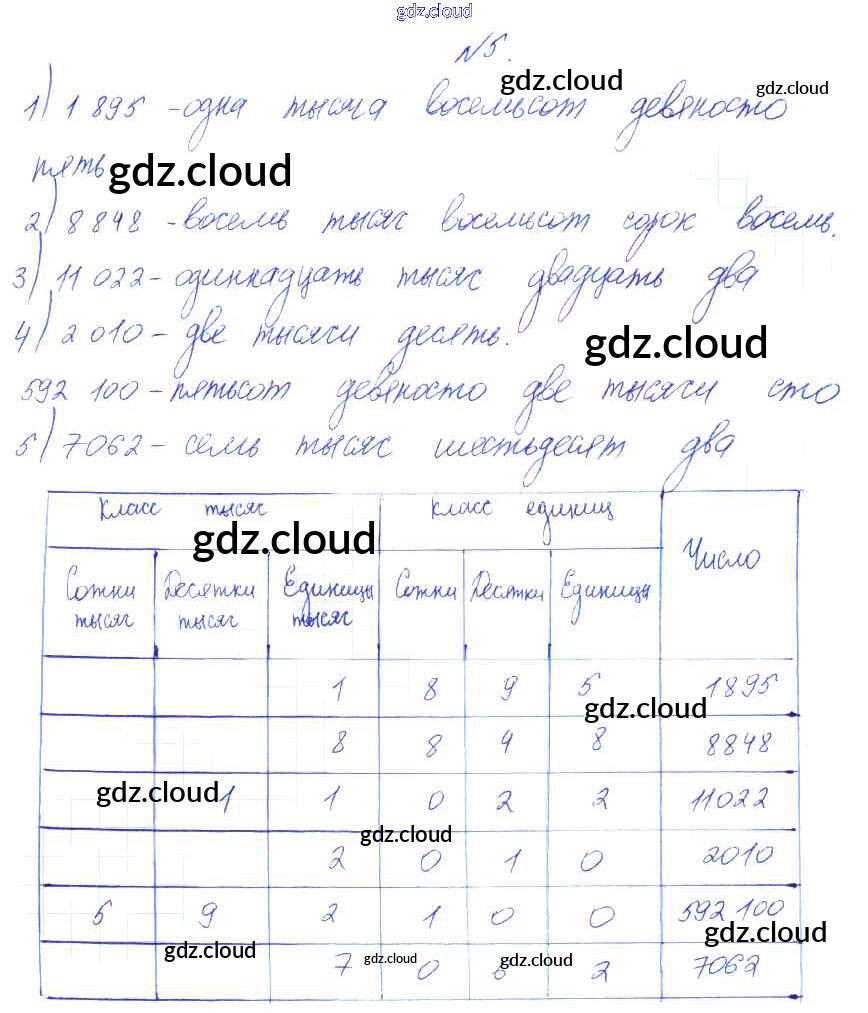 gdz.cloud
№5.
gdz.cloud
gdz.cloud
1) 1 895 - одна тысяча восемьсот девяносто
пять
gdz.cloud
2) 8 848 - восемь тысяч восемьсот сорок восемь.
3) 11 022 - одиннадцать тысяч двадцать два
4) 2 010 - две тысячи десять.
gdz.cloud
592 100 - пятьсот девяносто две тысячи сто
5) 7062 - семь тысяч шестьдесят два
Класс тысяч Класс единиц Число
gdz.cloud
Сотни тысяч Десятки тысяч Единицы тысяч Сотни Десятки Единицы
1 8 9 5 1895
gdz.cloud
8 8 4 8 8848
gdz.cloud
1 1 0 2 2 11022
gdz.cloud
2 0 1 0 2010
5 9 2 1 0 0 592 100
gdz.cloud
gdz.cloud
gdz.cloud
gdz.cloud
7 0 6 2 7062